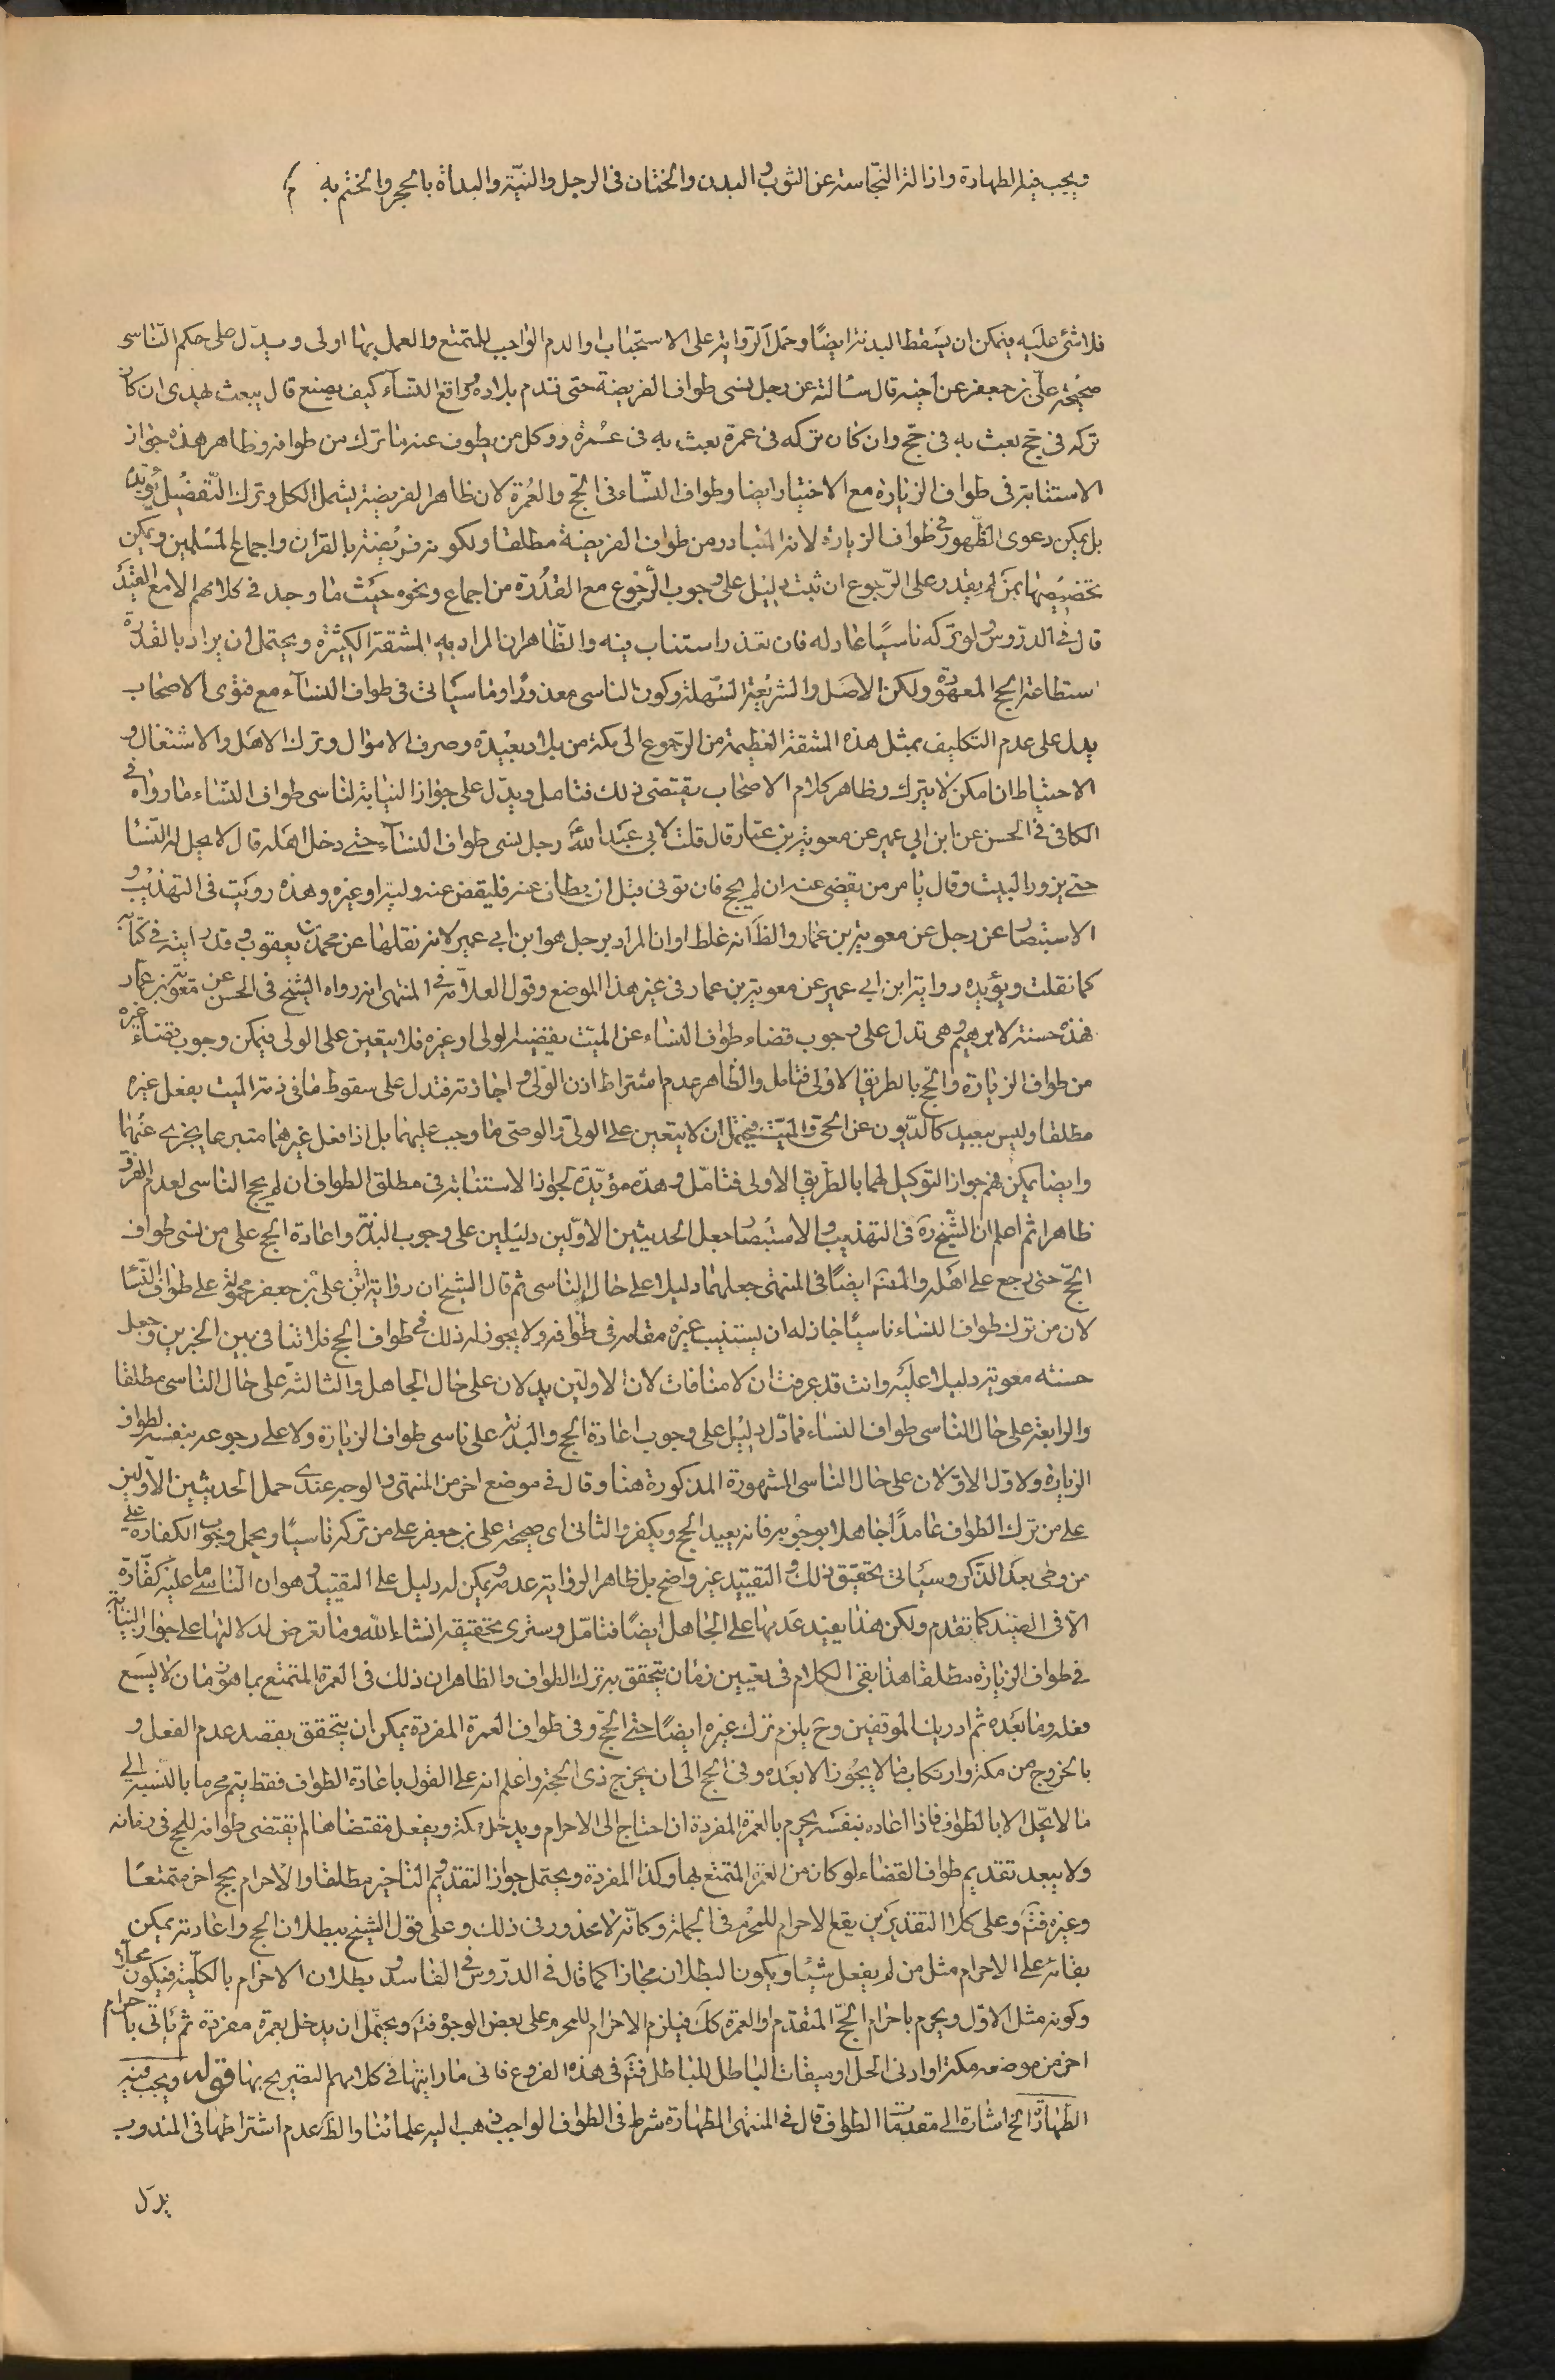 ويجب فيه الطهارة وازالة النجاسة عن الثوب والبدن والختان فى الرجل والنيّة والبدأة بالحجر والختم به م
فلا شئ عليه فيمكن ان يسقط البدنة ايضًا وحمل الرواية على الاستحباب او الدم الواجب للمتمتع والعمل بها اولى ويدّل على حكم النّاسى
صحيحة علىّ بن جعفر عن اخيه قال سالته عن رجل نسى طواف الفريضة حتى قدم بلاده وواقع النسآء كيف يصنع قال يبعث بهدى ان كان
تركه فى حجّ بعث به فى حجّ وان كان تركه فى عمرة بعث به فى عمرة ووكل من يطوف عنه ما ترك من طوافه وظاهر هذه جواز
الاستنابة فى طواف الزيارة مع الاختيار ايضا وطواف النسّاء فى الحجّ والعُمرة لان ظاهر الفريضة يشمل الكل وترك التفصيل يؤيّده
بل يمكن دعوى الظّهور فى طواف الزيارة لانه المتبادر من طواف الفريضة مطلقا ولكونه فريضة بالقران واجماع المسلمين ويمكن
تخصيصها بمن لم يقدر على الرّجوع ان ثبت دليل على وجوب الرّجوع مع القدُرة من اجماع ونحوه حيث ما وجد فى كلامهم الا مع القيد
قال فى الدروس ولو تركه ناسيًا عاد له فان تعذر استناب فيه والظّاهر ان المراد به المشقة الكثيرة ويحتمل ان يراد بالقدرة
استطاعة الحج المعهودة ولكن الاصل والشريعة السّهلة وكون الناسى معذورًا وما سيأتى فى طواف النسآء مع فتوى الاصحاب
يدل على عدم التكليف بمثل هذه المشقة العظيمة من الرجوع الى مكة من بلاد بعيدة وصرف الاموال وترك الاهل والاشتغال و
الاحتياط ان امكن لا يترك وظاهر كلام الاصحاب يقتضى ذلك فتامل ويدّل على جواز النيابة لناسى طواف النساء ما رواه فى
الكافى فى الحسن عن ابن ابي عمير عن معوية بن عمّار قال قلت لابى عبد الله رجل نسى طواف النسآء حتى دخل اهله قال لا يحل له النّسا
حتى يزور البيت وقال يأمر من يقضى عنه ان لم يحج فان توفى قبل ان يطاف عنه فليقض عنه وليه او غيره وهذه رويت فى التهذيب و
الاستبصار عن رجل عن معوية بن عمار والظّ انه غلط او ان المراد برجل هو ابن ابي عمير لانه نقلها عن محمد بن يعقوب وقد رايته فى كتابه
كما نقلت ويؤيده رواية ابن ابي عمير عن معوية بن عمار فى غير هذا الموضع وقول العلامة فى المنتهى انه رواه الشيخ فى الحسن عن معوية بن عمار
فهذه حسنة لابرهيم وهى تدل على وجوب قضاء طواف النساء عن الميت يقضيه الولى او غيره فلا يتعين على الولى فيمكن وجوب قضاء غيره
من طواف الزيارة والحج بالطريق الاولى فتامل والظاهر عدم اشتراط اذن الولى واجازته فتدل على سقوط ما فى ذمة الميت بفعل غيره
مطلقا وليس ببعيد كالدّيون عن الحى والميّت فيحتمل ان لا يتعين على الولى والوصى ما وجب عليهما بل اذا فعل غيرهما متبرعا يجزى عنهما
وايضا يمكن فهم جواز التوكيل لهما بالطريق الاولى فتامّل وهذه مؤيّدة لجواز الاستنابة فى مطلق الطواف ان لم يحج الناسى لعدم الفرق
ظاهرا ثم اعلم ان الشيخ ره فى التهذيب والاستبصار جعل الحديثين الاوّلين دليلين على وجوب البدنة واعادة الحج على من نسى طواف
الحجّ حتى يرجع على اهله والمصَ ايضًا فى المنتهى جعلهما دليلا على حال الناسى ثم قال الشيخ ان رواية على بن جعفر محمولة على طواف النسا
لان من ترك طواف النساء ناسيًا جاز له ان يستنيب غيره مقامه فى طوافه ولا يجوز له ذلك فى طواف الحج فلا تنافى بين الخبرين وجعل
حسنته معوية دليلا عليه وانت قد عرفت ان لا منافات لان الاولين يدلان على حال الجاهل والثالثة على حال الناسى مطلقا
والرابعة على حال الناسى طواف النساء فما دّل دليل على وجوب اعادة الحج والبدنة على ناسى طواف الزيارة ولا على رجوعه بنفسه لطواف
الزيارة ولا دّل الاوّلان على حال الناسى المشهورة المذكورة هنا وقال فى موضع اخر من المنتهى والوجه عندى حمل الحديثين الاولين
على من ترك الطواف عامدًا جاهلا بوجوبه فانه يعيد الحج ويكفر والثانى اى صحيحة على بن جعفر على من تركه ناسيًا ويحمل وجوب الكفارة على
من وطى بعد الذّكر وسيأتى تحقيق ذلك والتقييد غير واضح بل ظاهر الرواية عدمه ويمكن له دليل على التقييد وهو ان الناسى ما عليه كفّارة
الّا فى الصّيد كما تقدم ولكن هذا يفيد عَدمها على الجاهل ايضًا فتامّل وسترى تحقيقه انشاء الله وما تعرض لدلالتها على جواز النيابة
فى طواف الزيارة مطلقا هذا بقى الكلام فى تعيين زمان يتحقق به ترك الطواف والظاهر ان ذلك فى العمرة المتمتع بها هو زمان لا يسَع
فعله وما بَعده ثم ادرك الموقفين وح يلزم ترك غيره ايضًا حتى الحجّ وفى طواف العمرة المفردة يمكن ان يتحقق بقصد عدم الفعل و
بالخروج من مكة وارتكاب ما لا يجُوز الا بعَده وفى الحج الى ان يخرج ذى الحجة واعلم انه على القول باعادة الطواف فقط يتم محرما بالنسبة الى
ما لا يحّل الا بالطواف فاذا اعاده بنفسه يحرم بالعمرة المفردة ان احتاج الى الاحرام ويدخل مكة ويفعل مقتضاها لم يقتضى طوافه للحج فى زمانه
ولا يبعد تقديم طواف القضاء لو كان من العمرة المتمتع بها وكذا المفردة ويحتمل جواز التقديم والتاخير مطلقا والاحرام بحج اخر متمتعًا
وغيره فتَم وعلى كلا التقديرين يقع الاحرام للمحُرم فى الجملة وكانّه لا محذور فى ذلك وعلى قول الشيخ ببطلان الحج واعادته يمكن
بقائه على الاحرام مثل من لم يفعل شيئا ويكون البطلان مجازا كما قال فى الدرّوس فى الفاسد وبطلان الاحرام بالكلّية فيكون محلاً
وكونه مثل الاوّل ويحرم باحرام الحجّ المتقدم او العمرة كك فيلزم الاحرام للمحرم على بعض الوجوه فتم ويحتمل ان يدخل بعمرة مفردة ثم يأتى باحرام
اخر من موضعه مكة او ادنى الحل او ميقات الباطل للباطل فتَم فى هذه الفروع فانى ما رايتها فى كلامهم التصريح بها قوله ويجب فيه
الطهارة الخ اشارة الى مقدمات الطواف قال فى المنتهى الطهارة شرط فى الطواف الواجب ذهب اليه علمائنا والظ عدم اشتراطها فى المندوب
يدل